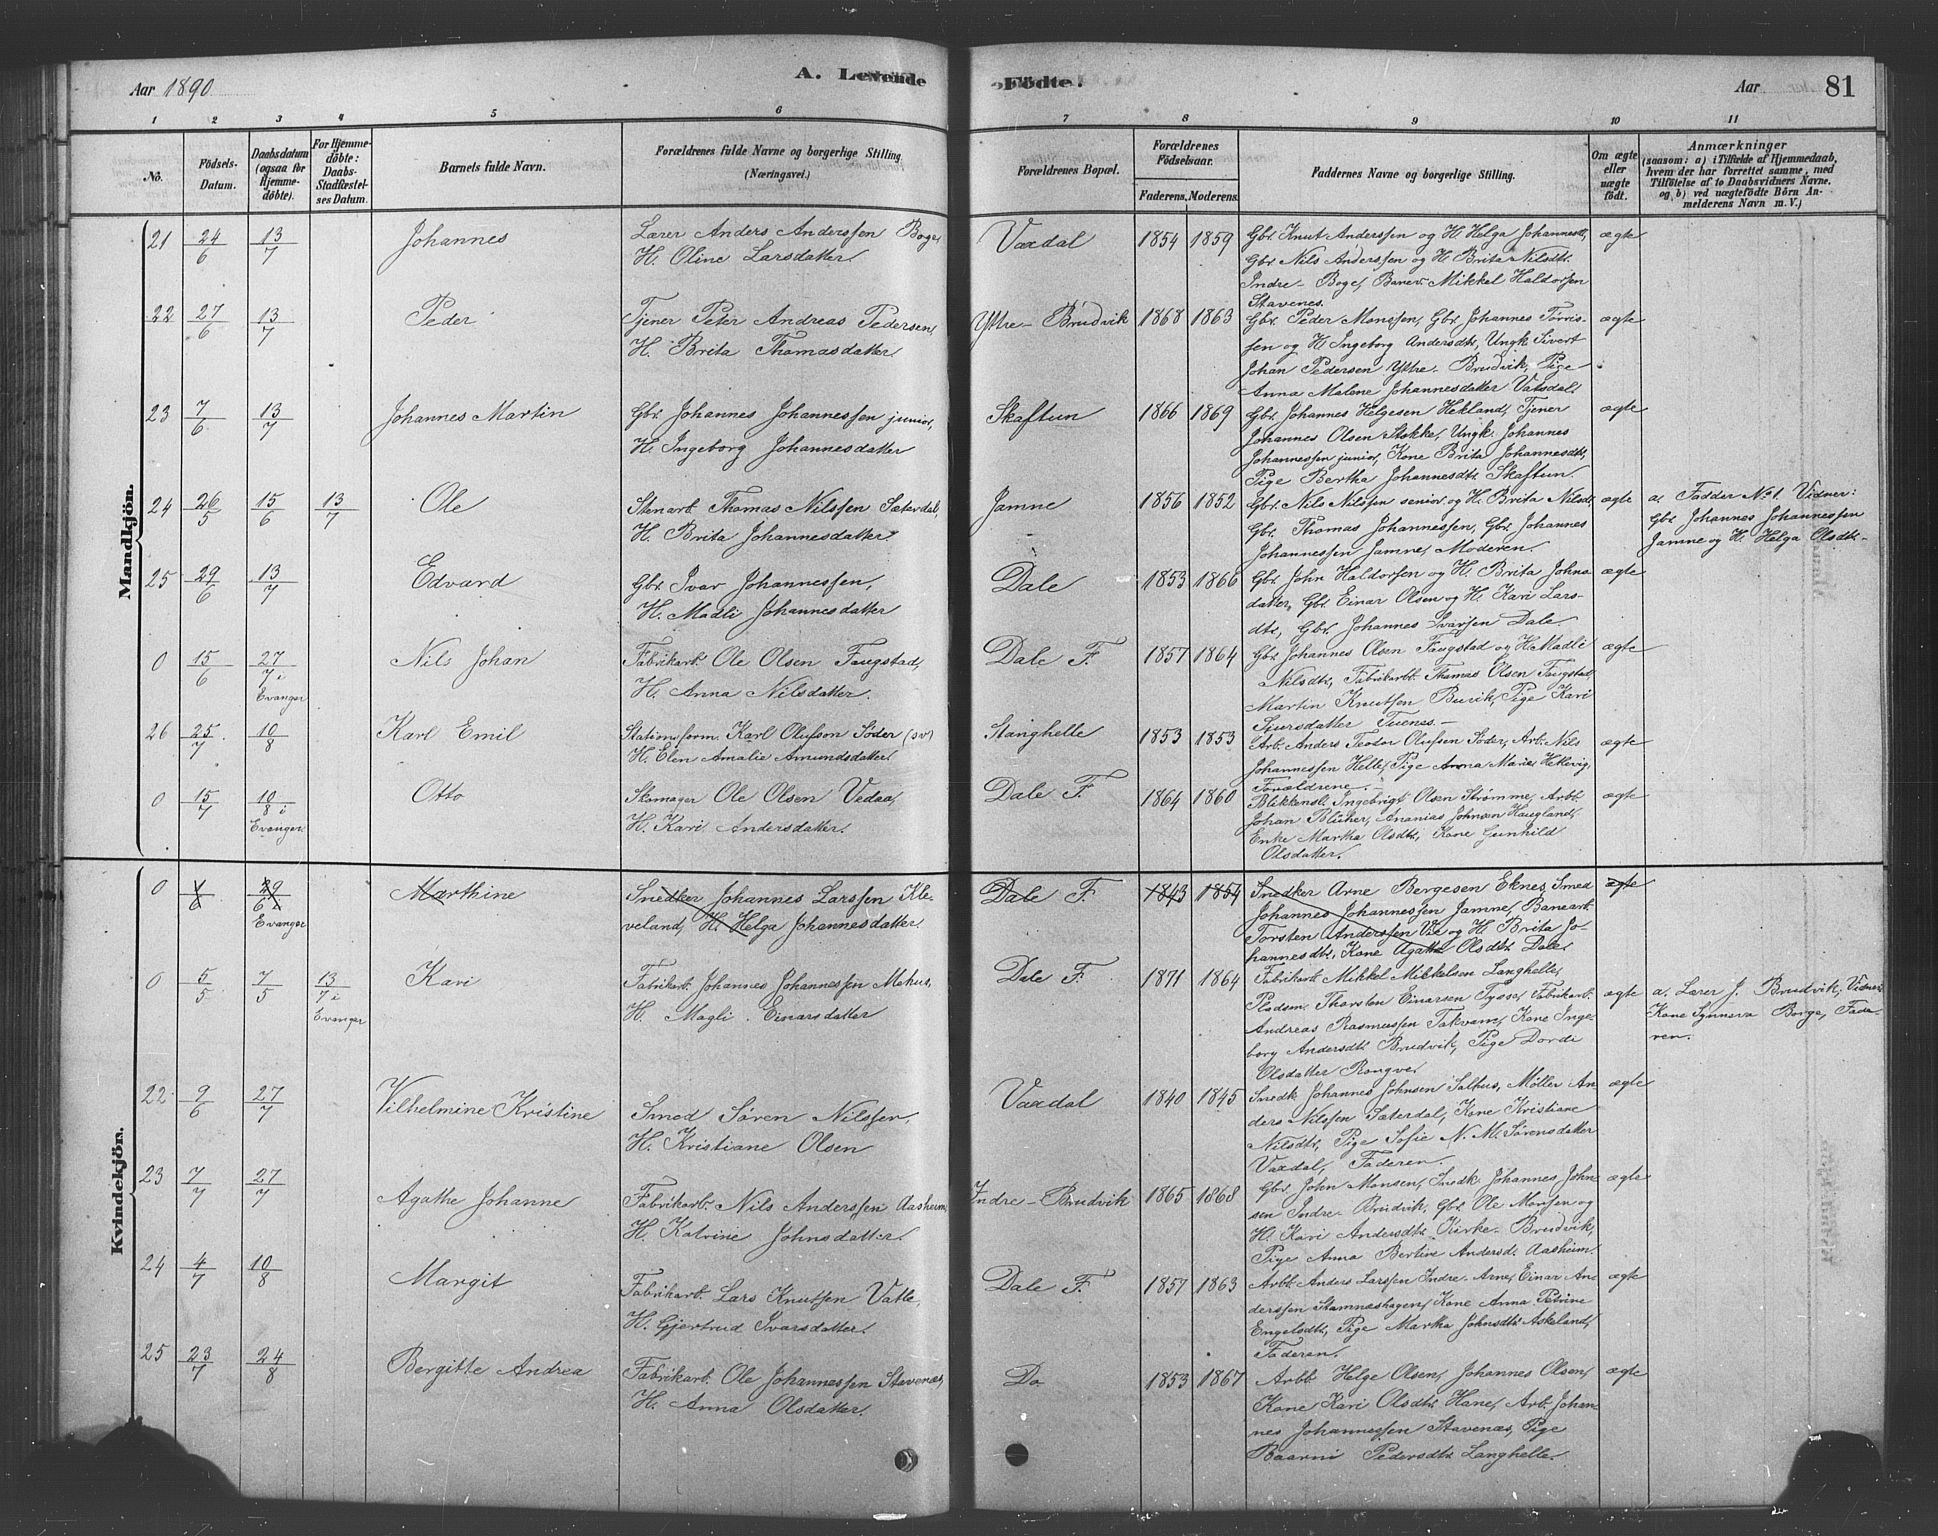 Aar 1890
A. Levende
Födte.
Aar
81
1 2 3 4 5 6 7 8 9 10 11
No.
Födsels-
Datum.
Daabsdatum
(ogsaa for
Hjemme-
döbte).
For Hjemme-
döbte:
Daabs-
Stadfæstel-
ses Datum.
Barnets fulde Navn.
Forældrenes fulde Navne og borgerlige Stilling
(Næringsvei.)
Forældrenes Bopæl.
Forældrenes
Födselsaar.
Faderens. Moderens.
Faddernes Navne og borgerlige Stilling.
Om ægte
eller
uægte
födt.
Anmærkninger
(saasom: a) i Tilfælde af Hjemmedaab,
hvem der har forrettet samme, med
Tilföielse af to Daabsvidners Navne.
og b) ved uægtefödte Börn An-
melderens Navn m. V.)
Mandkjön.
21 24/6 13/7 Johannes
Lærer Anders Anderssen Boge,
H. Oline Larsdatter.
Vaxdal 1854 1859
Gbr. Knut Anderssen og H. Helga Johannesdt,
Gbr. Nils Anderssen og H. Brita Nilsdtr.
Indre-Boge, Banev. Mikkel Haldorsen
Stavenes.
ægte
22 27/6 13/7 Peder
Tjener Peter Andreas Pedersen,
H. Brita Thomasdatter.
Yttre-Brudvik 1868 1863
Gbr. Peder Monssen, Gbr. Johannes Torris-
sen og H. Ingeborg Andersdtr, Ungk. Sivert
Johan Pedersen Yttre-Brudvik, Pige
Anna Malene Johannesdatter Vatsdal.
ægte
23 7/6 13/7 Johannes Martin
Gbr. Johannes Johannessen junior,
H. Ingeborg Johannesdatter
Skaftun 1866 1869
Gbr. Johannes Helgesen Hekland, Tjener
Johannes Olsen Stokke, Ungk. Johannes
Johannessen junior, Kone Brita Johannesdtr,
Pige Bertha Johannesdtr. Skaftun
ægte
24 26/5 15/6 13/7 Ole
Stenarb. Thomas Nilssen Sæterdal,
H. Brita Johannesdatter.
Jamne 1856 1852
Gbr. Nils Nilssen senior og H. Brita Nilsdt,
Gbr. Thomas Johannessen, Gbr. Johannes
Johannessen Jamne, Moderen.
ægte
a. Fadder No 1. Vidner:
Gbr. Johannes Johannessen
Jamne og H. Helga Olsdtr.-
25 29/6 13/7 Edvard
Gbr. Ivar Johannessen,
H. Madli Johannesdatter
Dale 1853 1866
Gbr. John Haldorsen og H. Brita Johns-
datter, Gbr. Einar Olsen og H. Kari Lars-
dtr, Gbr. Johannes Ivarsen Dale.
ægte
0 15/6 27/7 i Evanger Nils Johan
Fabrikarb. Ole Olsen Faugstad,
H. Anna Nilsdatter.
Dale F. 1857 1864
Gbr. Johannes Olsen Faugstad og H. Madli
Nilsdtr, Fabrikarb. Thomas Olsen Faugstad
Martin Knutsen Burik, Pige Kari
Sjursdatter Tuenes.-
ægte
26 25/7 10/8 Karl Emil
Stationsform. Karl Olufson Söder (sv)
H. Elen Amalie Amundsdatter.
Stanghelle 1853 1853
Arb. Anders Teodor Olufsen Söder, Arb. Nils
Johannessen Helle, Pige Anna Marie Hekkevig,
Forældrene.-
ægte
0 15/7 10/8 i Evanger. Otto
Skomager Ole Olsen Vedaa,
H. Kari Andersdatter.
Dale F. 1864 1860
Blikkensl. Ingebrigt Olsen Strömme, Arbb.
Johan Blücher, Ananias Johnsen Haugland,
Enke Martha Olsdtr, Kone Gunhild
Olsdatter.
ægte
Kvindekjön.
0 1/6 29/6 i Evanger Marthine
Snedker Johannes Larssen Kle-
veland, H. Helga Johannesdatter.
Dale F. 1843 1854
Snedker Arne Bergesen Eknes, Smed
Johannes Johannessen Jamne, Banearb.
Torsten Anderssen Vie og H. Brita Jo-
hannesdtr, Kone Agatha Olsdtr. Dale.
ægte
0 5/5 7/5 13/7 i Evanger Kari
Fabrikarb. Johannes Johannessen Mehus,
H. Magli Einarsdatter
Dale F. 1871 1864
Fabrikarb. Mikkel Mikkelsen Langhelle,
Pladsm. Thorsten Einarsen Tysse, Fabrikarb.
Andreas Rasmussen Takvam, Kone Inge-
borg Andersdtr. Brudvik, Pige Dordi
Olsdatter Rongve.
ægte
a. Lærer J. Brudvik, Vidner:
Kone Synneva Borge, Fade-
ren.
22 9/6 27/7 Vilhelmine Kristine
Smed Sören Nilssen,
H. Kristiane Olsen
Vaxdal 1840 1845
Smedk. Johannes Johnsen Salhus, Møller An-
ders Nilssen Sæterdal, Kone Kristiane
Nilsdtr, Pige Sofie N. M. Sörensdatter
Vaxdal, Faderen.
ægte
23 7/7 27/7 Agathe Johanne
Fabrikarb. Nils Anderssen Aasheim,
H. Katrine Johnsdatter.
Indre-Brudvik 1865 1868
Gbr. John Monsen, Snedk. Johannes John-
sen Indre-Brudvik, Gbr. Ole Monsen og
H. Kari Andersdtr. Kirke-Brudvik,
Pige Anna Bertine Andersd. Aasheim.
ægte
24 4/7 10/8 Margit
Fabrikarb. Lars Knutsen Vatle,
H. Gjertrud Ivarsdatter.
Dale F. 1857 1863
Arbb. Anders Larssen Indre-Arne, Einar An-
derssen Stamneshagen, Kone Anna Petrine
Engelsdtr, Pige Martha Johnsdtr. Askeland,
Faderen.
ægte
25 23/7 24/8 Bergitte Andrea
Fabrikarb. Ole Johannessen Stavenæs,
H. Anna Olsdatter.
Do 1853 1867
Arbb. Helge Olsen, Johannes Olsen,
Kone Kari Olsdtr. Hane, Arb. Johan-
nes Johannessen Stavenæs, Pige
Baarni Pedersdtr. Langhelle.
ægte